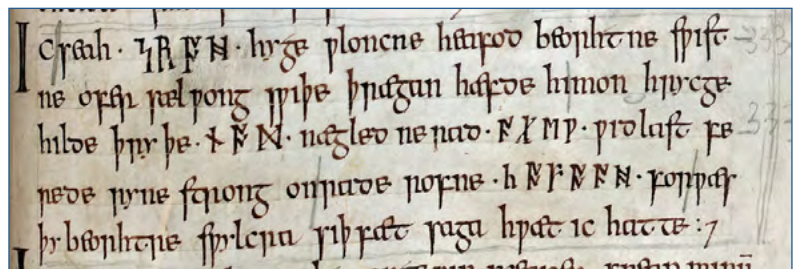 Ic seah · ᛋᚱᚩᚻ · hyge wloncne heafod beorhtne swift
ne ofer sælwong swiþe þrægan hæfde himon hrycge
hilde þryþe · ᚾᚩᛗ · nægled ne rad · ᚪᚷᛖᚹ · widlast fe
rede ryne strong onrade rofne · ᚳᚩᚠᚩᚪᚻ · forwæs
þy beorhtre swylcra siþfæt saga hwæt ic hatte :7